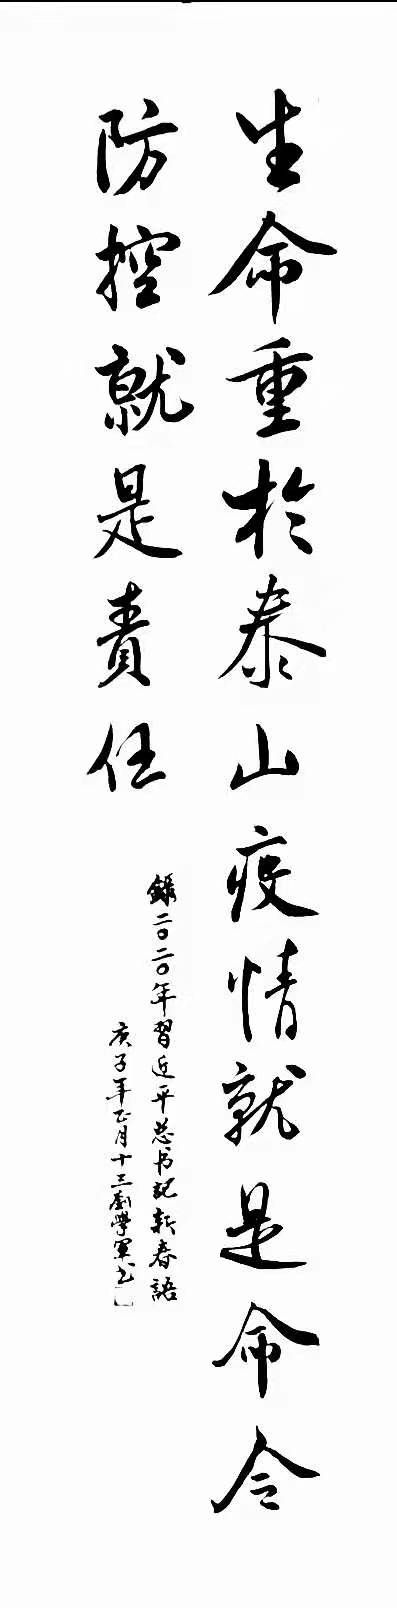 生命重於泰山疫情就是命令
防控就是責任
錄二〇二〇年習近平总书記新春語
庚子年正月十三劉學軍书